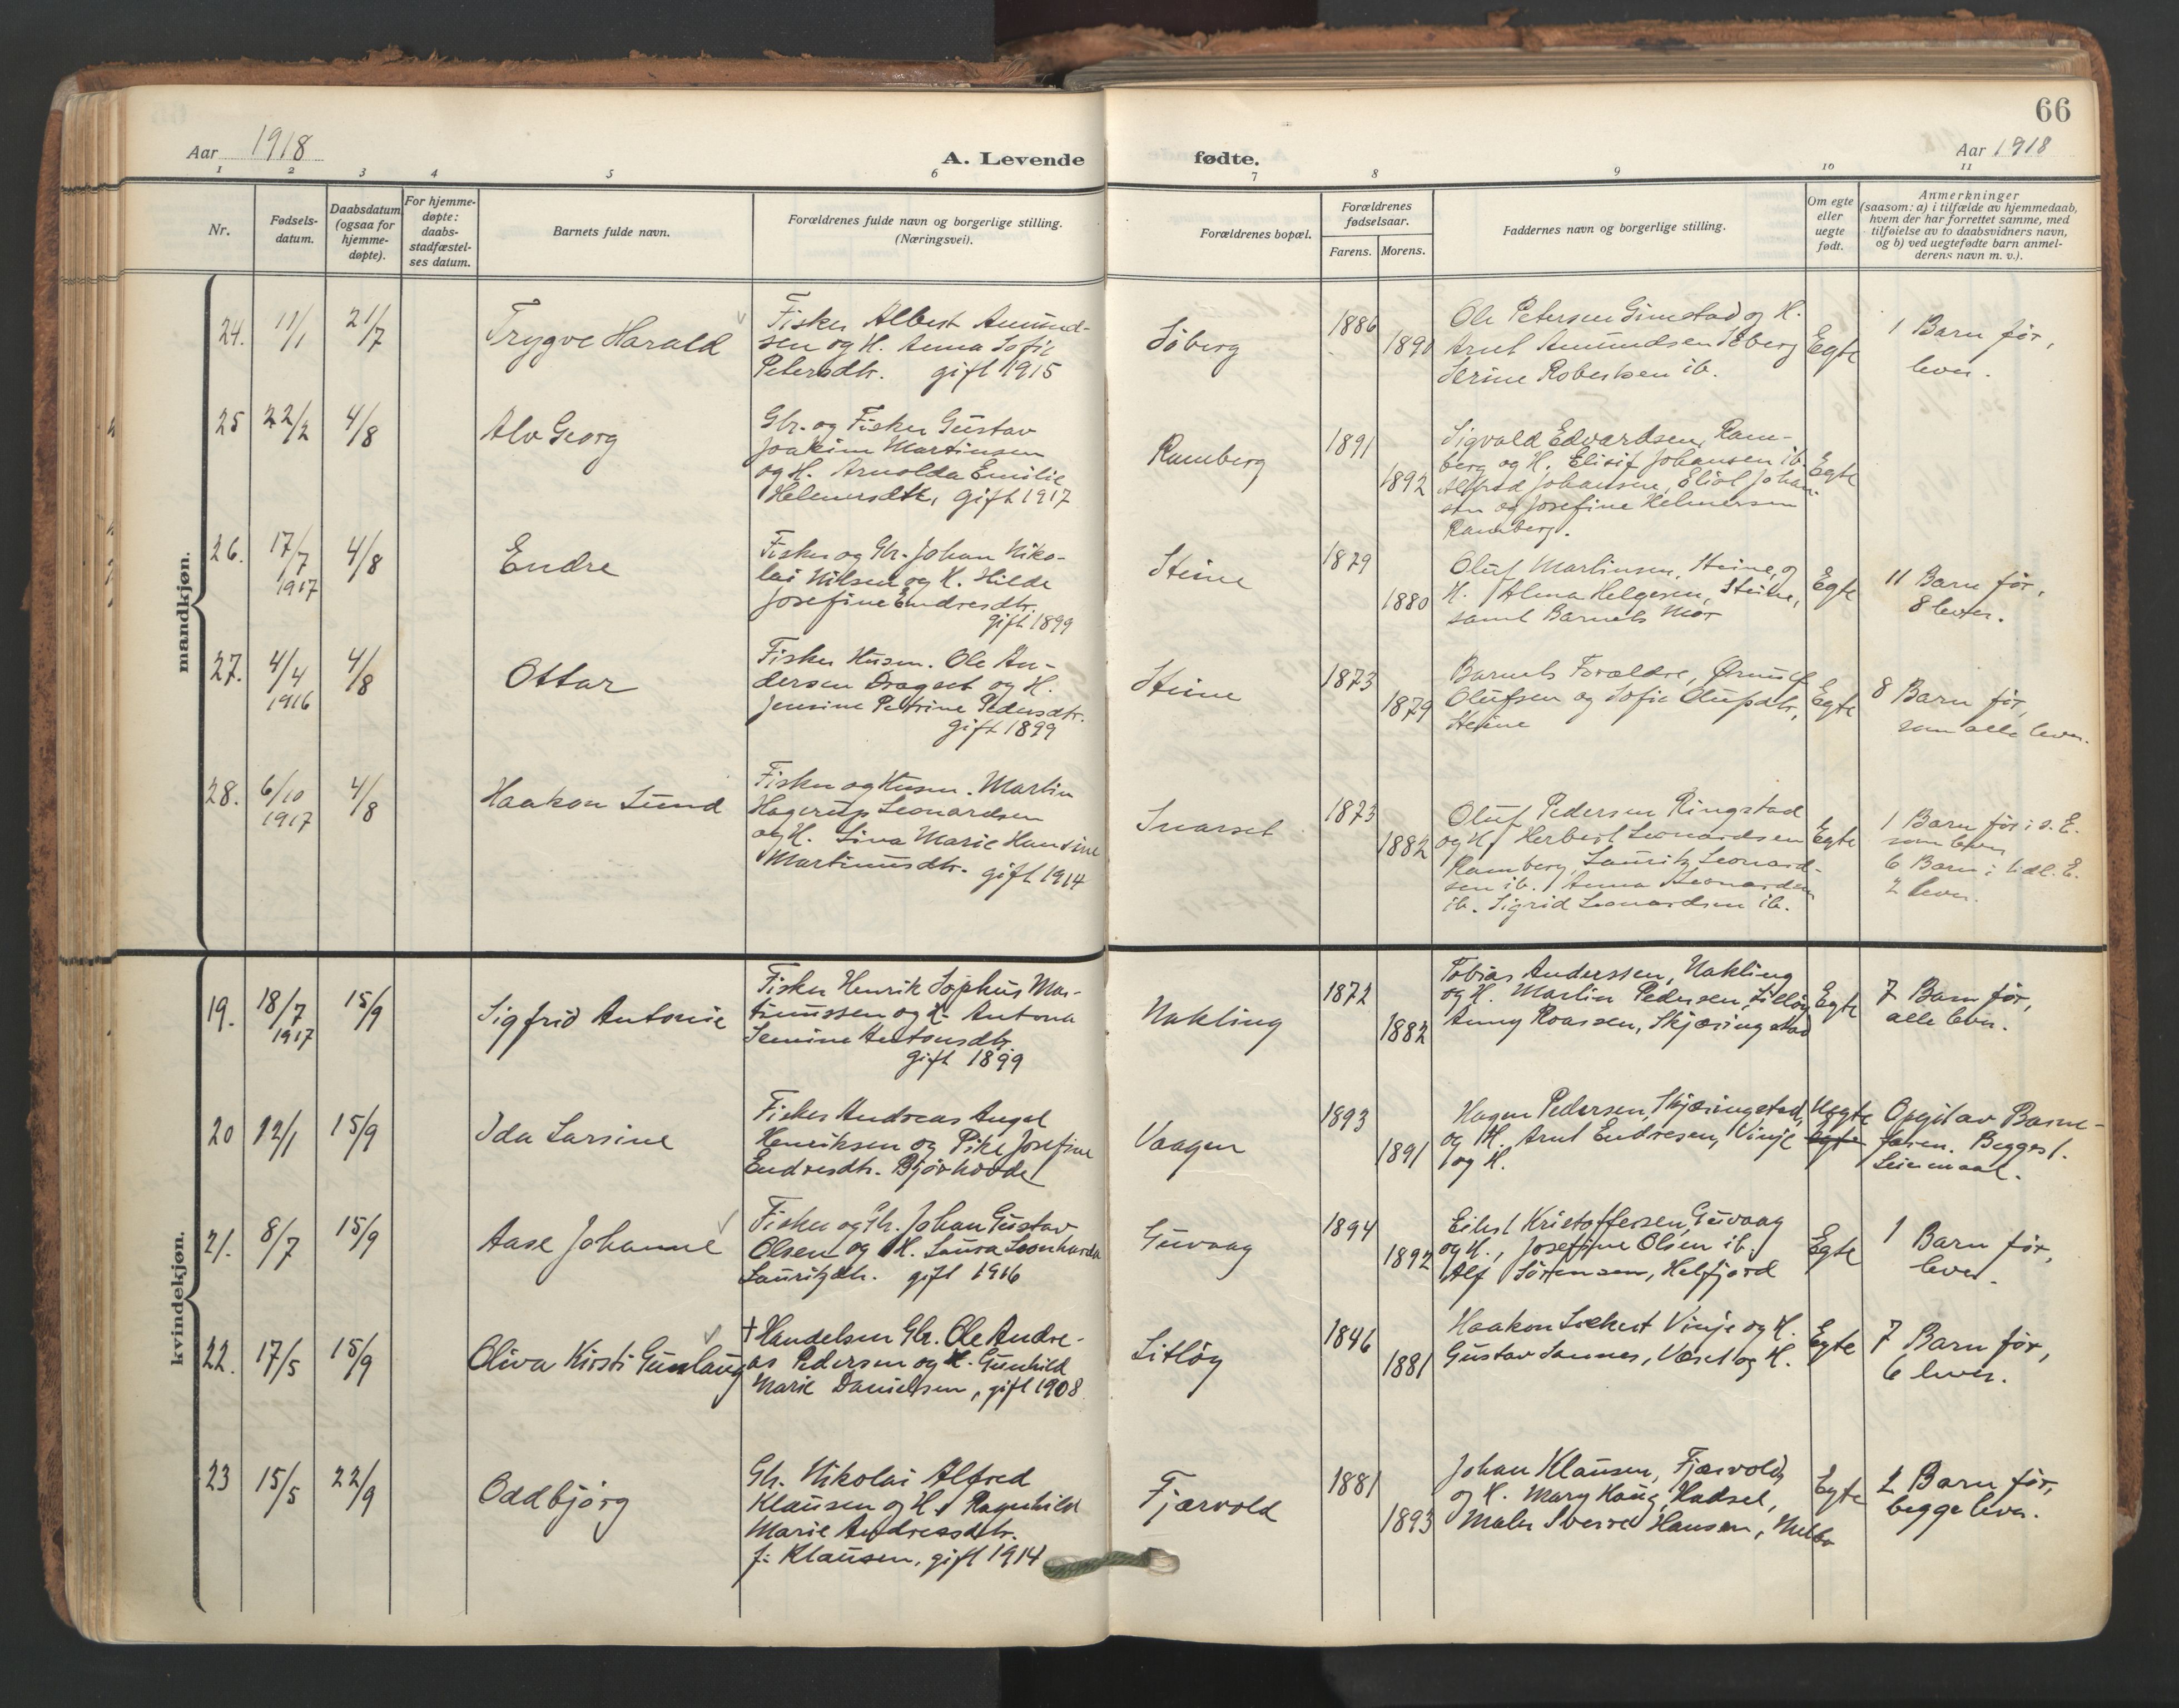 66
Aar 1918
A. Levende
fødte.
Aar 1918
1 2 3 4 5 6 7 8 9 10 11
Nr.
Fødsels-
datum.
Daabsdatum
(ogsaa for
hjemme-
døpte).
For hjemme-
døpte:
daabs-
stadfæstel-
ses datum.
Barnets fulde navn.
Forældrenes fulde navn og borgerlige stilling.
(Næringsvei).
Forældrenes bopæl.
Forældrenes
fødselsaar.
Farens. Morens.
Faddernes navn og borgerlige stilling.
Om egte
eller
uegte
født.
Anmerkninger
(saasom: a) i tilfælde av hjemmedaab,
hvem der har forrettet samme, med
tilføielse av to daabsvidners navn,
og b) ved uegtefødte barn anmel-
derens navn m. v.).
mandkjøn.
24. 11/1 21/7
Trygve Harald
Fisker Albert Amund-
sen og H. Anna Sofie
Petersdtr. gift 1915
Söberg
1886
1890
Ole Petersen Gimstad og H.
Arnt Amundsen Söberg
Serine Robertsen ib.
Egte
1 Barn før,
lever.
25 22/2 4/8
Alv Georg
Gbr. og Fisker Gustav
Joakim Martinsen
og H. Arnolda Emilie
Helmersdtr, gift 1917
Ramberg
1891
1892
Sigvald Edvardsen, Ram-
berg og H. Elisif Johansen ib.
Alfred Johansen, Johan-
sen og Josefine Helmersen
Ramberg.
Egte
26. 17/7 1917 4/8
Endre
Fisker og Gbr. Johan Niko-
lai Nilsen og H. Hilde
Josefine Endresdtr.
gift 1899
Steine
1879
1880
Oluf Martinsen, Steine, og
H. Alma Helgesen, Steine,
samt Barnets Mor
Egte
11 Barn før,
8 lever.
27. 4/4 1916 4/8
Ottar
Fisker Husm. Ole An-
dersen Dragset og H.
Jensine Petrine Pedersdtr.
gift 1899
Steine
1873
1879
Barnets Forældre, Ørnulf
Olufsen og Sofie Olufsdtr,
Steine
Egte
8 Barn før,
som alle lever.
28. 6/10 1917 4/8
Haakon Lund
Fisker og Husm. Martin
Hagerup Leonardsen
og H. Lina Marie Hansine
Martinusdtr. gift 1914
Snarset
1873
1882
Oluf Pedersen Ringstad
og H, Herbert Leonardsen
Ramberg, Lauritz Leonard-
sen ib. Anna Leonardsen
ib. Sigrid Leonardsen ib.
Egte
1 Barn før i s. E.
som lever
6 Barn i tidl. E.
2 lever.
kvindekjøn.
19. 18/7 1917 15/9
Sigfrid Antonie
Fisker Henrik Sophus Mar-
tinussen og H. Antona
Semine Antonsdtr.
gift 1899
Nakling
1872
1882
Tobias Anderssen, Nakling
og H. Martin Pedersen, Litløy
Anny Roassen, Skjæringstad
Egte
7 Barn før,
alle lever.
20 12/1 15/9
Ida Larsine
Fisker Andreas Angel
Henriksen og Pike Josefine
Endresdtr. Bjørhovde
Vaagen
1893
1891
Hagen Pedersen, Skjæringstad,
og H. Arnt Endresen, Vinje
og H.
Uegte
egte
Opgit av Barne-
faren. Begges 1.
Leiermaal.
21. 8/7 15/9
Aase Johanne
Fisker og Gbr. Johan Gustav
Olsen og H. Laura Leonharda
Lauritzdtr. gift 1916
Guvaag
1894
1892
Eilert Kristoffersen, Guvaag
og H., Josefine Olsen ib.
Alf Sörensen, Helfjord
Egte
1 Barn før,
lever.
22. 17/5 15/9
Oliva Kirsti Gunlaug
† Handelsm Gbr. Ole Andre-
as Pedersen og H. Gunhild
Marie Danielsen, gift 1908
Litløy
1846
1881
Haakon Lockert Vinje og H.
Gustav Sannes, Væset og H.
Egte
7 Barn før,
6 lever.
23 15/5 22/9
Oddbjörg
Gbr. Nikolai Alfred
Klausen og H. Ragnhild
Marie Andreasdtr.
f: Klausen, gift 1914
Fjærvold
1881
1893
Johan Klausen, Fjærvold,
og H. Mary Haug, Hadsel,
Maler Sverre Hansen, Melbo
Egte
2 Barn før,
begge lever.